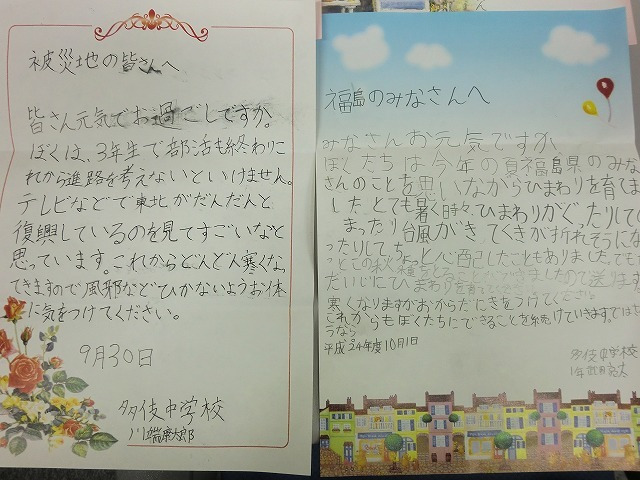 被災地の皆さんへ
皆さん元気でお過ごしですか。
ぼくは、3年生で部活も終わりこ
れから進路を考えないといけません。
テレビなどで東北がだんだんと
復興しているのを見てすごいなと
思っています。これからどんどん寒くなっ
てきますので風邪などひかないようお体
に気をつけてください。
9月30日
多伎中学校
福島のみなさんへ
みなさんお元気ですか
ぼくたちは今年の夏福島県のみな
さんのことを思いながらひまわりを育てま
した とても暑く時々、ひまわりがぐったりして
まったり台風がきてくきが折れそうにな
ったりしてちょっと心配したこともありました。でもた
だいじにひまわり
ので送ります
寒くなりますがおからだにきをつけて
これからもぼくたちにできることを続けていきます。ではさ
うなら
平成24年度10月1日
多伎中学校
1年